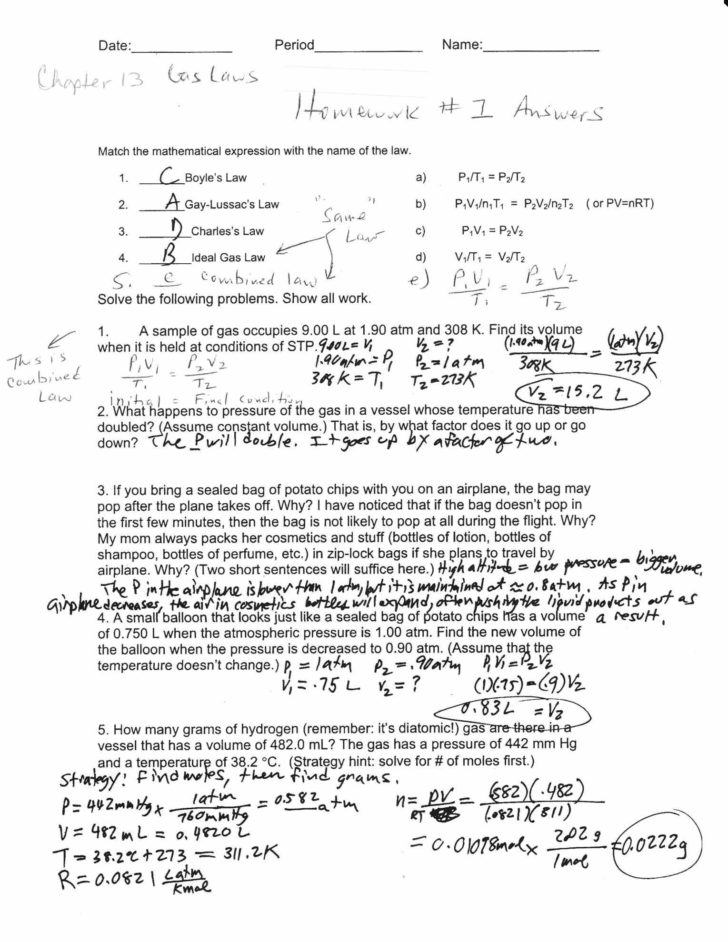 Date:____________ Period____________ Name:____________
Chapter 13 Gas Laws
Homework # 1 Answers
Match the mathematical expression with the name of the law.
1. C Boyle's Law a) P₁/T₁ = P₂/T₂
2. A Gay-Lussac's Law b) P₁V₁/n₁T₁ = P₂V₂/n₂T₂ ( or PV=nRT)
3. D Charles's Law c) P₁V₁ = P₂V₂
4. B Ideal Gas Law d) V₁/T₁ = V₂/T₂
Same Law
5. e combined law e) P₁V₁/T₁ = P₂V₂/T₂
Solve the following problems. Show all work.
1. A sample of gas occupies 9.00 L at 1.90 atm and 308 K. Find its volume
when it is held at conditions of STP. 9.00L = V₁ V₂ = ? (1.90atm)(9L)/308K = (1atm)(V₂)/273K
1.90atm = P₁ P₂ = 1atm
308K = T₁ T₂ = 273K
V₂ = 15.2 L
This is combined Law
P₁V₁/T₁ = P₂V₂/T₂
initial = Final condition
2. What happens to pressure of the gas in a vessel whose temperature has been
doubled? (Assume constant volume.) That is, by what factor does it go up or go
down? The P will double. It goes up by a factor of two.
3. If you bring a sealed bag of potato chips with you on an airplane, the bag may
pop after the plane takes off. Why? I have noticed that if the bag doesn't pop in
the first few minutes, then the bag is not likely to pop at all during the flight. Why?
My mom always packs her cosmetics and stuff (bottles of lotion, bottles of
shampoo, bottles of perfume, etc.) in zip-lock bags if she plans to travel by
airplane. Why? (Two short sentences will suffice here.) High altitude = low pressure = bigger volume.
The P in the airplane is lower than 1atm, but it is maintained at ≈ 0.8atm. As P in
airplane decreases, the air in cosmetics bottles will expand, often pushing the liquid products out as
a result.
4. A small balloon that looks just like a sealed bag of potato chips has a volume
of 0.750 L when the atmospheric pressure is 1.00 atm. Find the new volume of
the balloon when the pressure is decreased to 0.90 atm. (Assume that the
temperature doesn't change.) P₁ = 1atm P₂ = .90atm P₁V₁ = P₂V₂
V₁ = .75 L V₂ = ? (1)(.75) = (.9)V₂
0.83L = V₂
5. How many grams of hydrogen (remember: it's diatomic!) gas are there in a
vessel that has a volume of 482.0 mL? The gas has a pressure of 442 mm Hg
and a temperature of 38.2 °C. (Strategy hint: solve for # of moles first.)
Strategy! Find moles, then find grams.
P = 442mmHg x 1atm/760mmHg = 0.582 atm n = PV/RT = (.582)(.482)/(.0821)(311)
V = 482mL = 0.4820 L
= 0.01098mol x 2.02g/1mol = 0.0222g
T = 38.2°C + 273 = 311.2K
R = 0.0821 Latm/Kmol